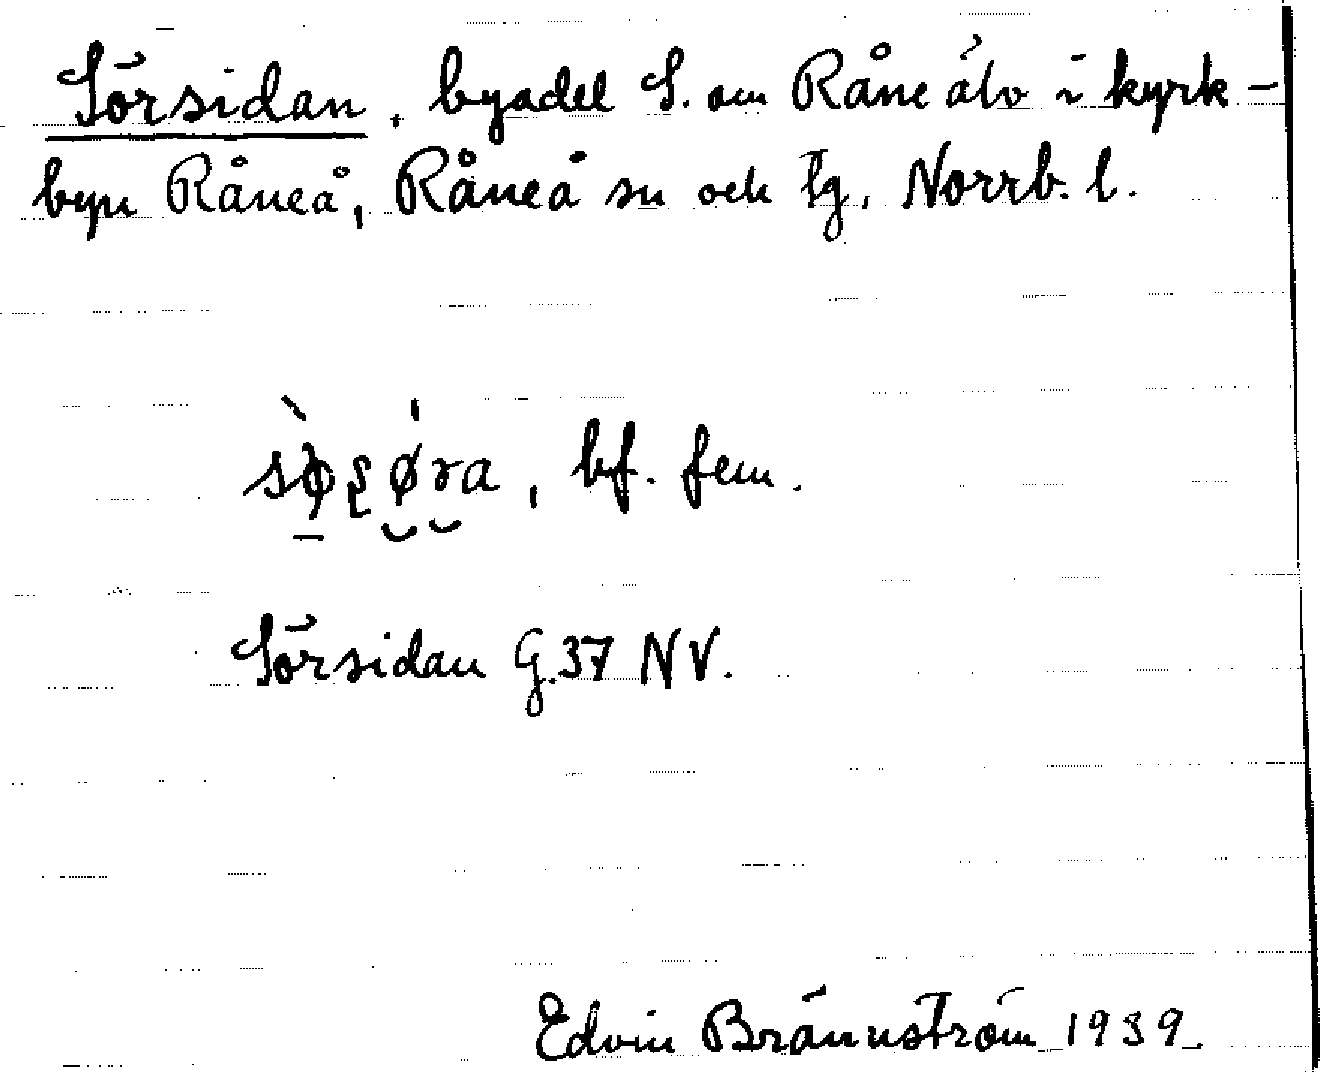 Sörsidan, byadel S. om Råne älv i kyrk-
byn Råneå, Råneå sn och tg, Norrb. l.
, bf. fem.
Sörsidan G.37 NV.
Edvin Brännström 1939.